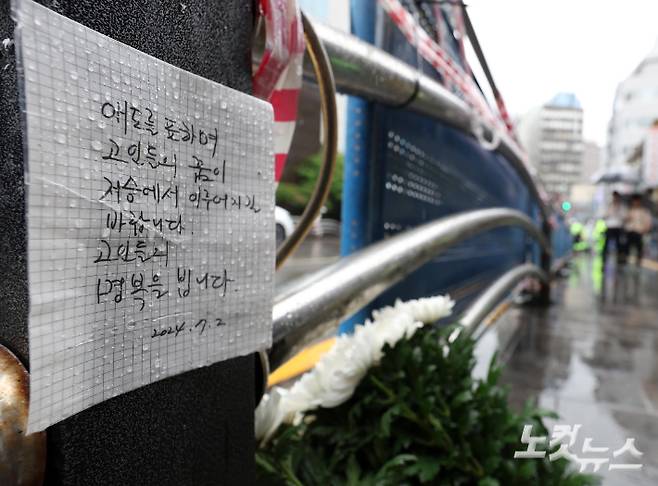 애도를 표하며
고인들의 꿈이
저승에서 이루어지길
바랍니다.
고인들의
명복을 빕니다.
2024. 7. 2
노컷뉴스